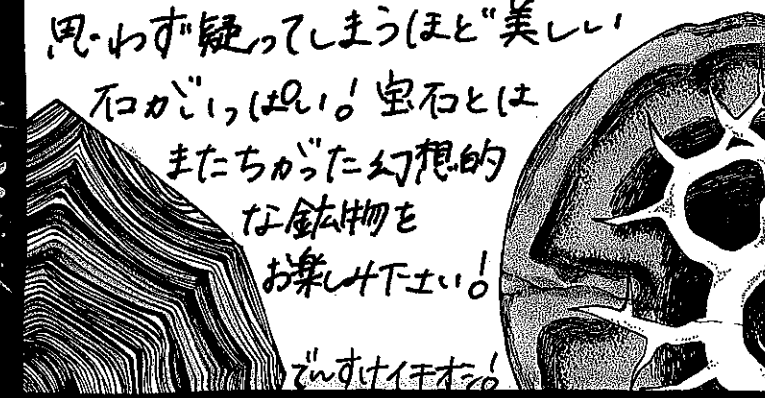 思わず疑ってしまうほど美しい
石がいっぱい!宝石とは
またちがった幻想的
な鉱物を
お楽しみ下さい!
でんすけイチオシ!